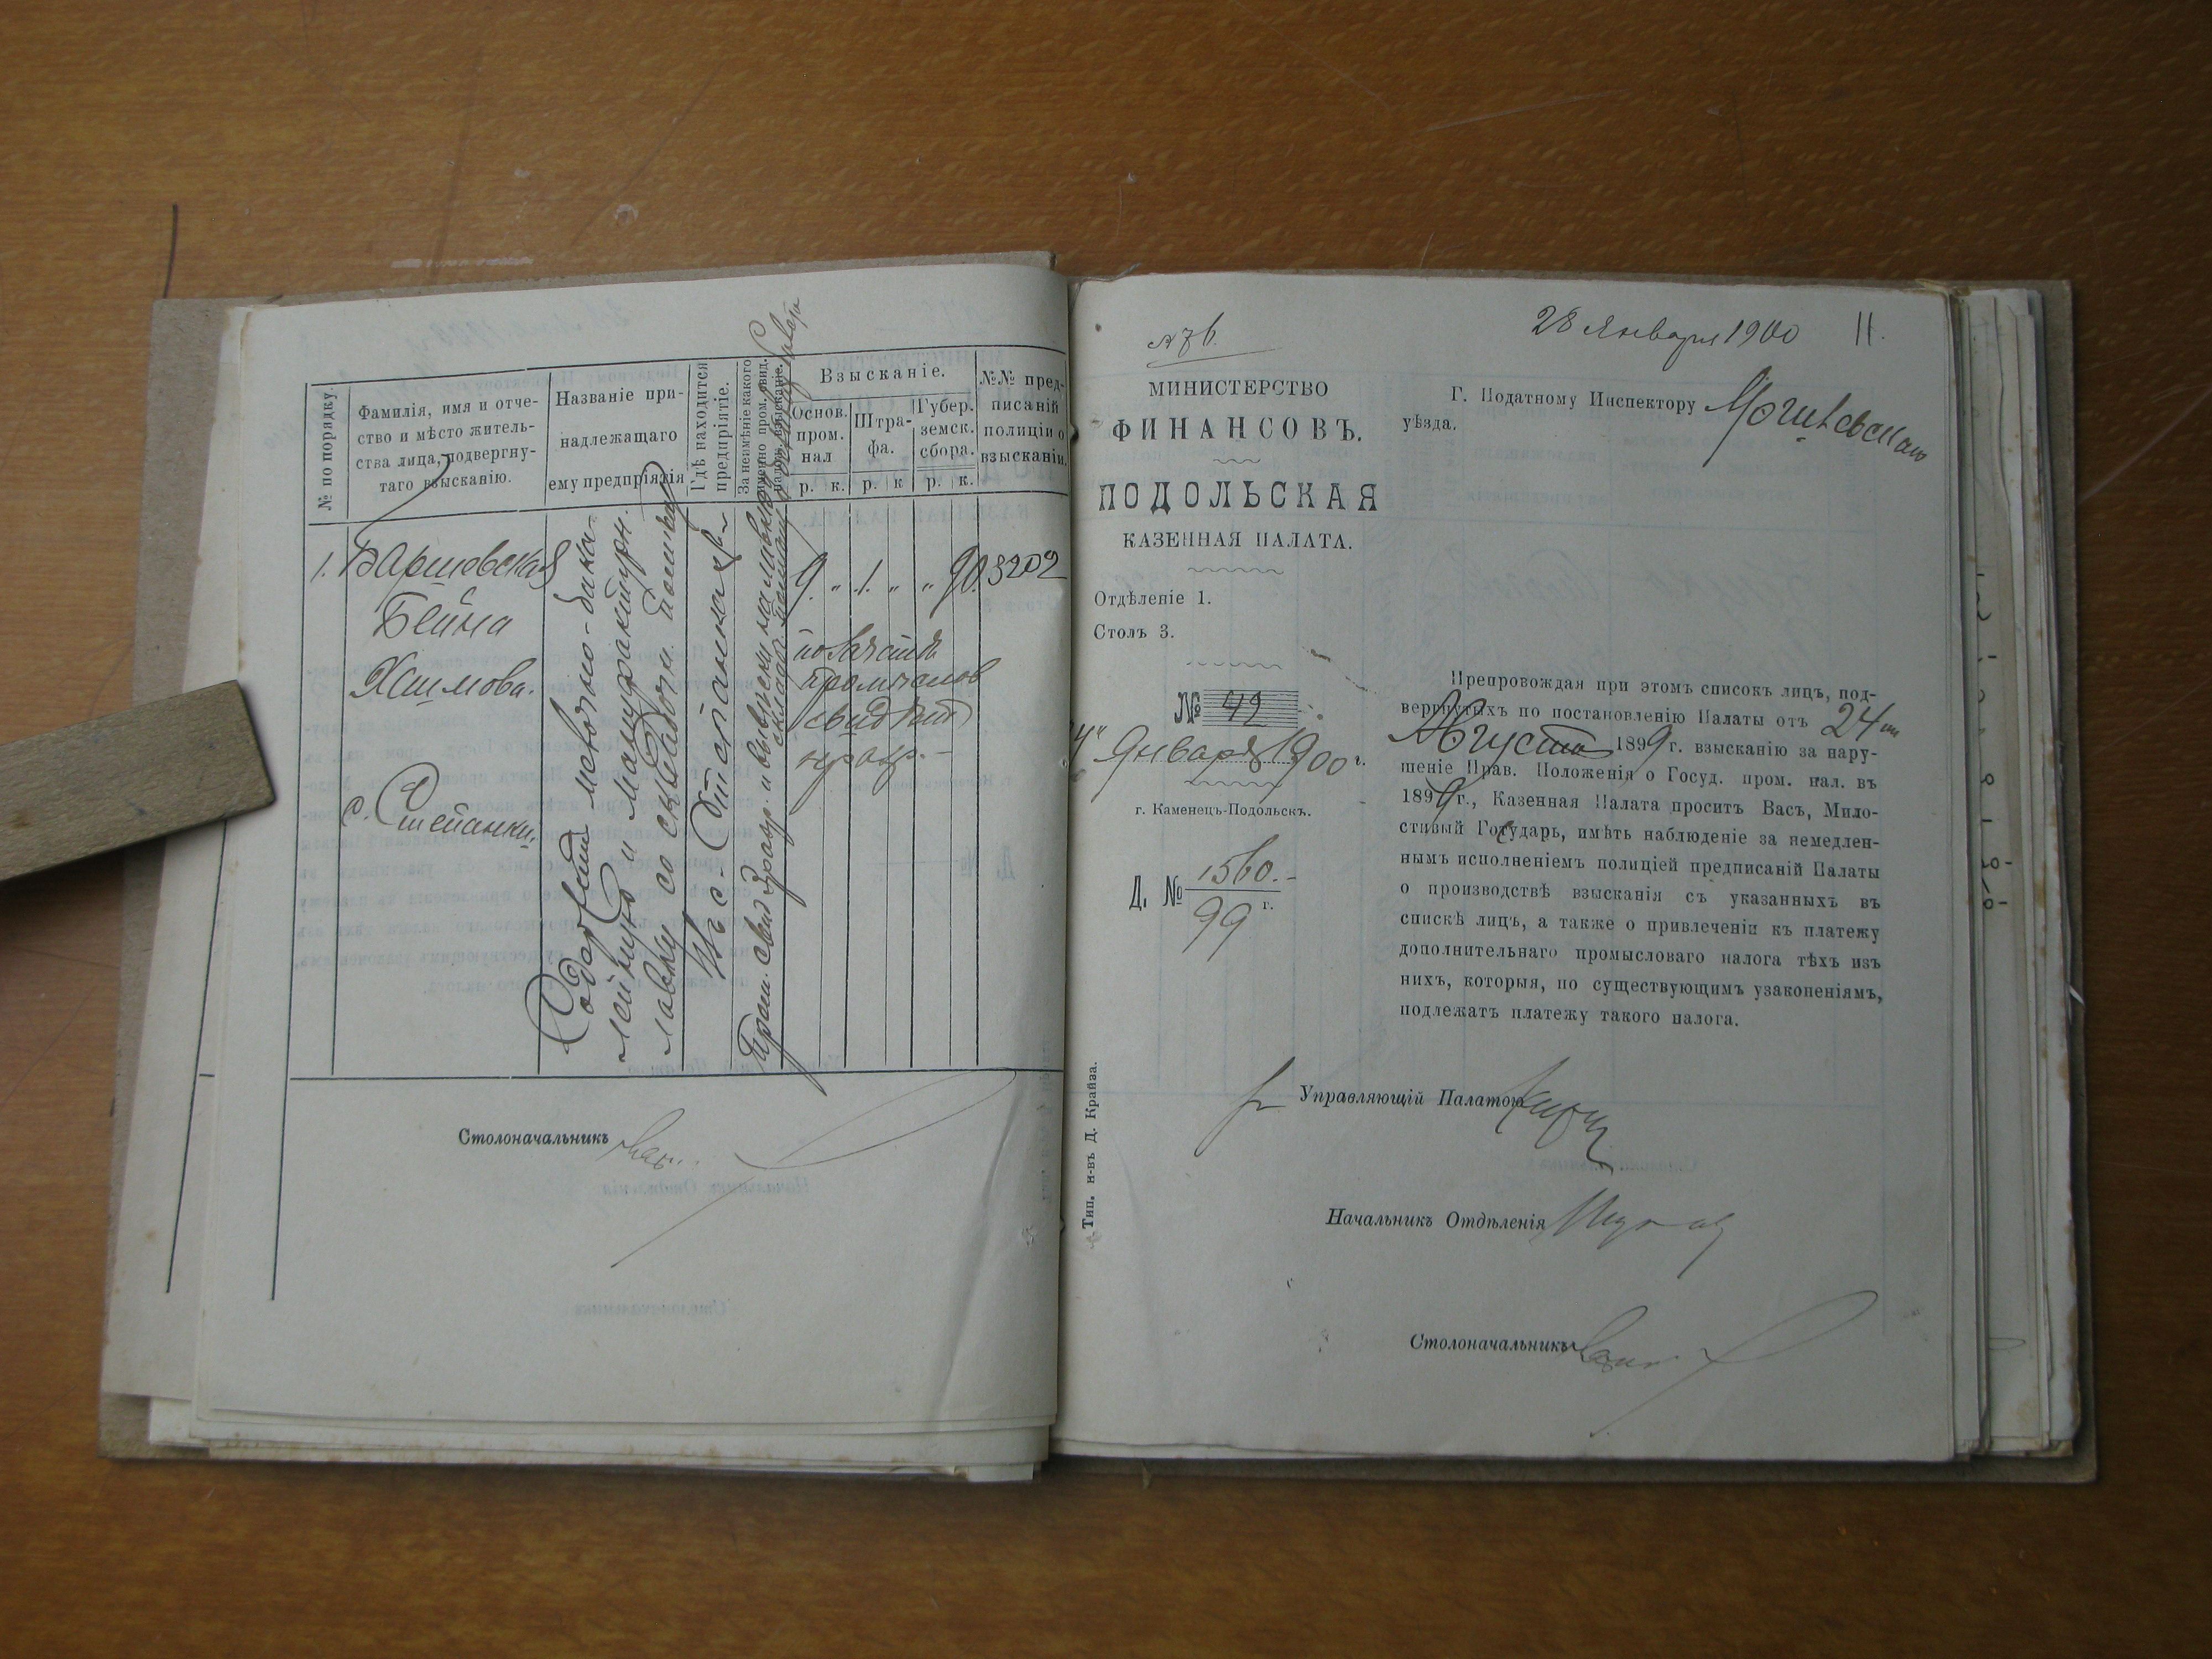 № по порядку.
Фамилія, имя и отче-
ство и мѣсто житель-
ства лица, подвергну-
таго взысканію.
Названіе при-
надлежащаго
ему предпріятія
Гдѣ находится
предпріятіе.
За неимѣніе какого
именно пром. свид.
налож. взысканіе.
Взысканіе.
Основ.
пром.
нал
р. к.
Штра-
фа.
р. к
Губер.
земск.
сбора.
р. к.
№№ пред-
писаній
полиціи о
взысканіи.
1. Варшавская
Бейна
Хаимова.
с. Степанки.
Содерж. мелочно-бака-
лейную и мануфактурн.
лавку со складочн. помѣщ.
Въ с. Степанкахъ
Пром. свид. 3 разр. и выписки на лавку
складоч. помѣщ.
9 " 1 " " 90
3202
промыслов
свидѣт
разр.
Столоначальникъ
№ 76.
28 Января 1900
11.
МИНИСТЕРСТВО
ФИНАНСОВЪ.
ПОДОЛЬСКАЯ
КАЗЕННАЯ ПАЛАТА.
Отдѣленіе 1.
Столъ 3.
№ 42
Января 1900 г.
г. Каменецъ-Подольскъ.
Д. № 1560.-
99 г.
Тип. н-въ Д. Крайза.
Г. Податному Инспектору Могилевскаго
уѣзда.
Препровождая при этомъ списокъ лицъ, под-
вергнутыхъ по постановленію Палаты отъ 24го
Августа 1899 г. взысканію за нару-
шеніе Прав. Положенія о Госуд. пром. нал. въ
1899 г., Казенная Палата проситъ Васъ, Мило-
стивый Государь, имѣть наблюденіе за немедлен-
нымъ исполненіемъ полиціей предписаній Палаты
о производствѣ взысканія съ указанныхъ въ
спискѣ лицъ, а также о привлеченіи къ платежу
дополнительнаго промысловаго налога тѣхъ изъ
нихъ, которыя, по существующимъ узаконеніямъ,
подлежатъ платежу такого налога.
Управляющій Палатою
Начальникъ Отдѣленія
Столоначальникъ